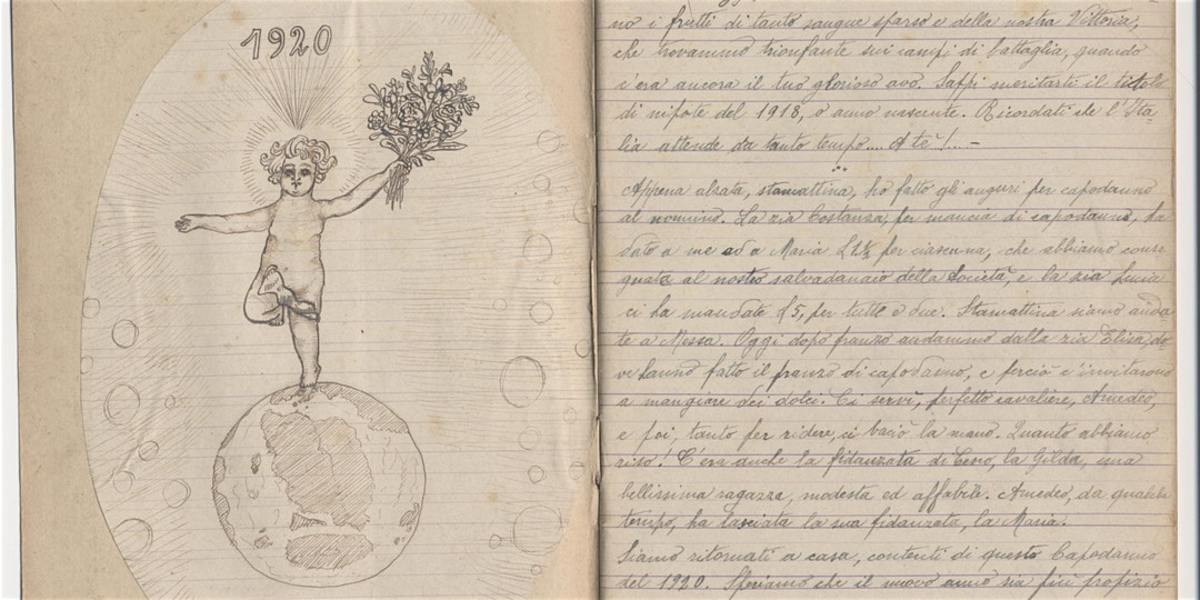 1920
no i frutti di tanto sangue sparso e della nostra Vittoria,
che trovammo trionfante sui campi di battaglia, quando
c'era ancora il tuo glorioso avo. Sappi meritarti il titolo
di nipote del 1918, o anno nascente. Ricordati che l'Ita-
lia attende da tanto tempo.... A te!...-
Appena alzata, stamattina, ho fatto gli auguri per capodanno
al nonnino. La zia Costanza, per mancia di capodanno, ha
dato a me ed a Maria £1½ per ciascuna, che abbiamo conse
gnate al nostro salvadanaio della Società, e la zia Lucia
ci ha mandate £5, per tutte e due. Stamattina siamo anda
te a Messa. Oggi dopo pranzo andammo dalla zia Elisa do-
ve hanno fatto il pranzo di capodanno, e perciò c'invitarono
a mangiare dei dolci. Ci servì, perfetto cavaliere, Amedeo,
e poi, tanto per ridere, ci baciò la mano. Quanto abbiamo
riso! C'era anche la fidanzata di, la Gilda, una
bellissima ragazza, modesta ed affabile. Amedeo, da qualche
tempo, ha lasciata la sua fidanzata, la Maria.
Siamo ritornati a casa, contenti di questo Capodanno
del 1920. Speriamo che il nuovo anno sia più propizio